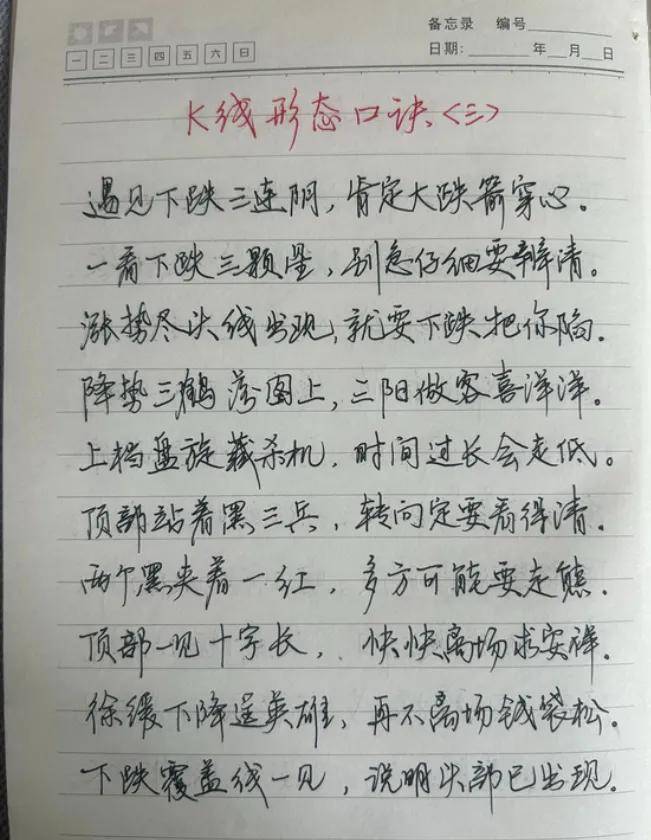 备忘录 编号
一 二 三 四 五 六 日
日期: 年 月 日
K线形态口诀<三>
遇见下跌三连阴，肯定大跌箭穿心。
一看下跌三颗星，别急仔细要辩清。
涨势尽头线出现，就要下跌把你陷.
降势三鹤落图上，三阳做客喜洋洋。
上档盘旋藏杀机，时间过长会走低。
顶部站着黑三兵，转向定要看得清.
两个黑夹着一红，多方可能要走熊.
顶部一见十字长，快快离场求安祥.
徐缓下降逞英雄，再不离场钱袋松.
下跌覆盖线一见，说明头部已出现.